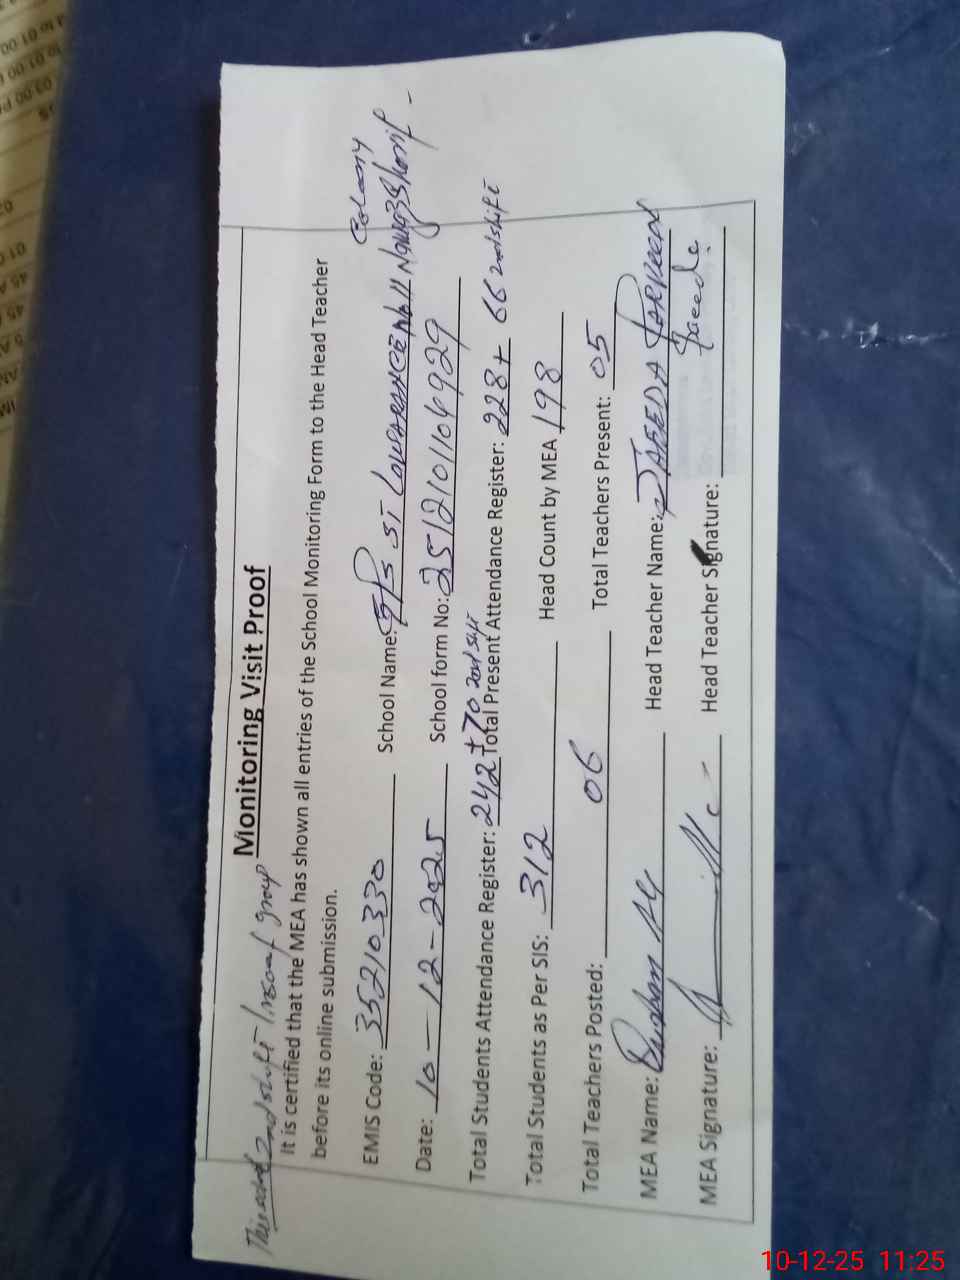 2nd shift Insaf group
Monitoring Visit Proof
It is certified that the MEA has shown all entries of the School Monitoring Form to the Head Teacher
before its online submission.
EMIS Code: 35210330 School Name: GPS ST Colony
Date: 10-12-2025 School form No: 2512101104929
Total Students Attendance Register: 242 + 70 2nd shift Total Present Attendance Register: 228 + 66 2nd shift
Total Students as Per SIS: 312 Head Count by MEA 198
Total Teachers Posted: 06 Total Teachers Present: 05
MEA Name: Head Teacher Name: SAEEDA PARVEEN
MEA Signature: Head Teacher Signature: Saeeda
10-12-25 11:25